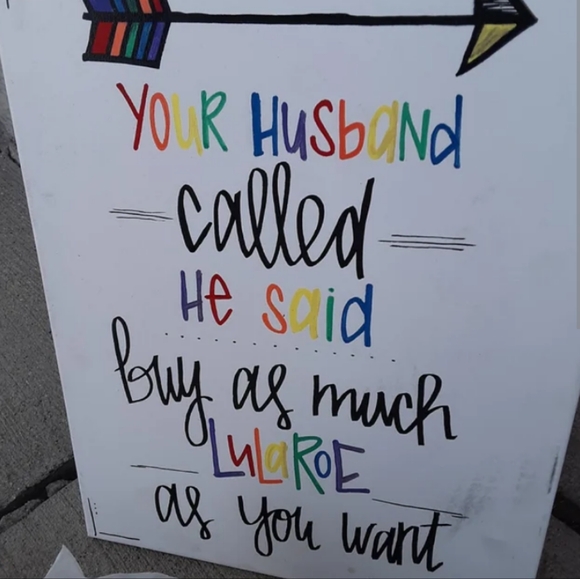 YOUR HUSbaNd
called
He said
buy as much
LuLaRoE
as you want